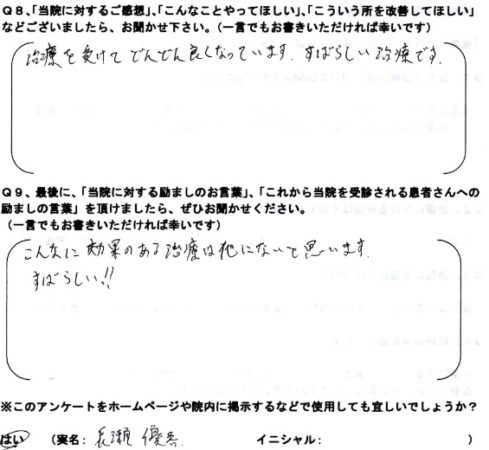 Q8、「当院に対するご感想」、「こんなことやってほしい」、「こういう所を改善してほしい」
などございましたら、お聞かせ下さい。（一言でもお書きいただければ幸いです）
治療を受けて でんぜん良くなっています. すばらしい治療です.
Q9、最後に、「当院に対する励ましのお言葉」、「これから当院を受診される患者さんへの
励ましの言葉」を頂けましたら、ぜひお聞かせください。
（一言でもお書きいただければ幸いです）
こんなに 効果のある治療は他にないと思います.
すばらしい!!
※このアンケートをホームページや院内に掲示するなどで使用しても宜しいでしょうか？
はい （実名: 長瀬 イニシャル: ）